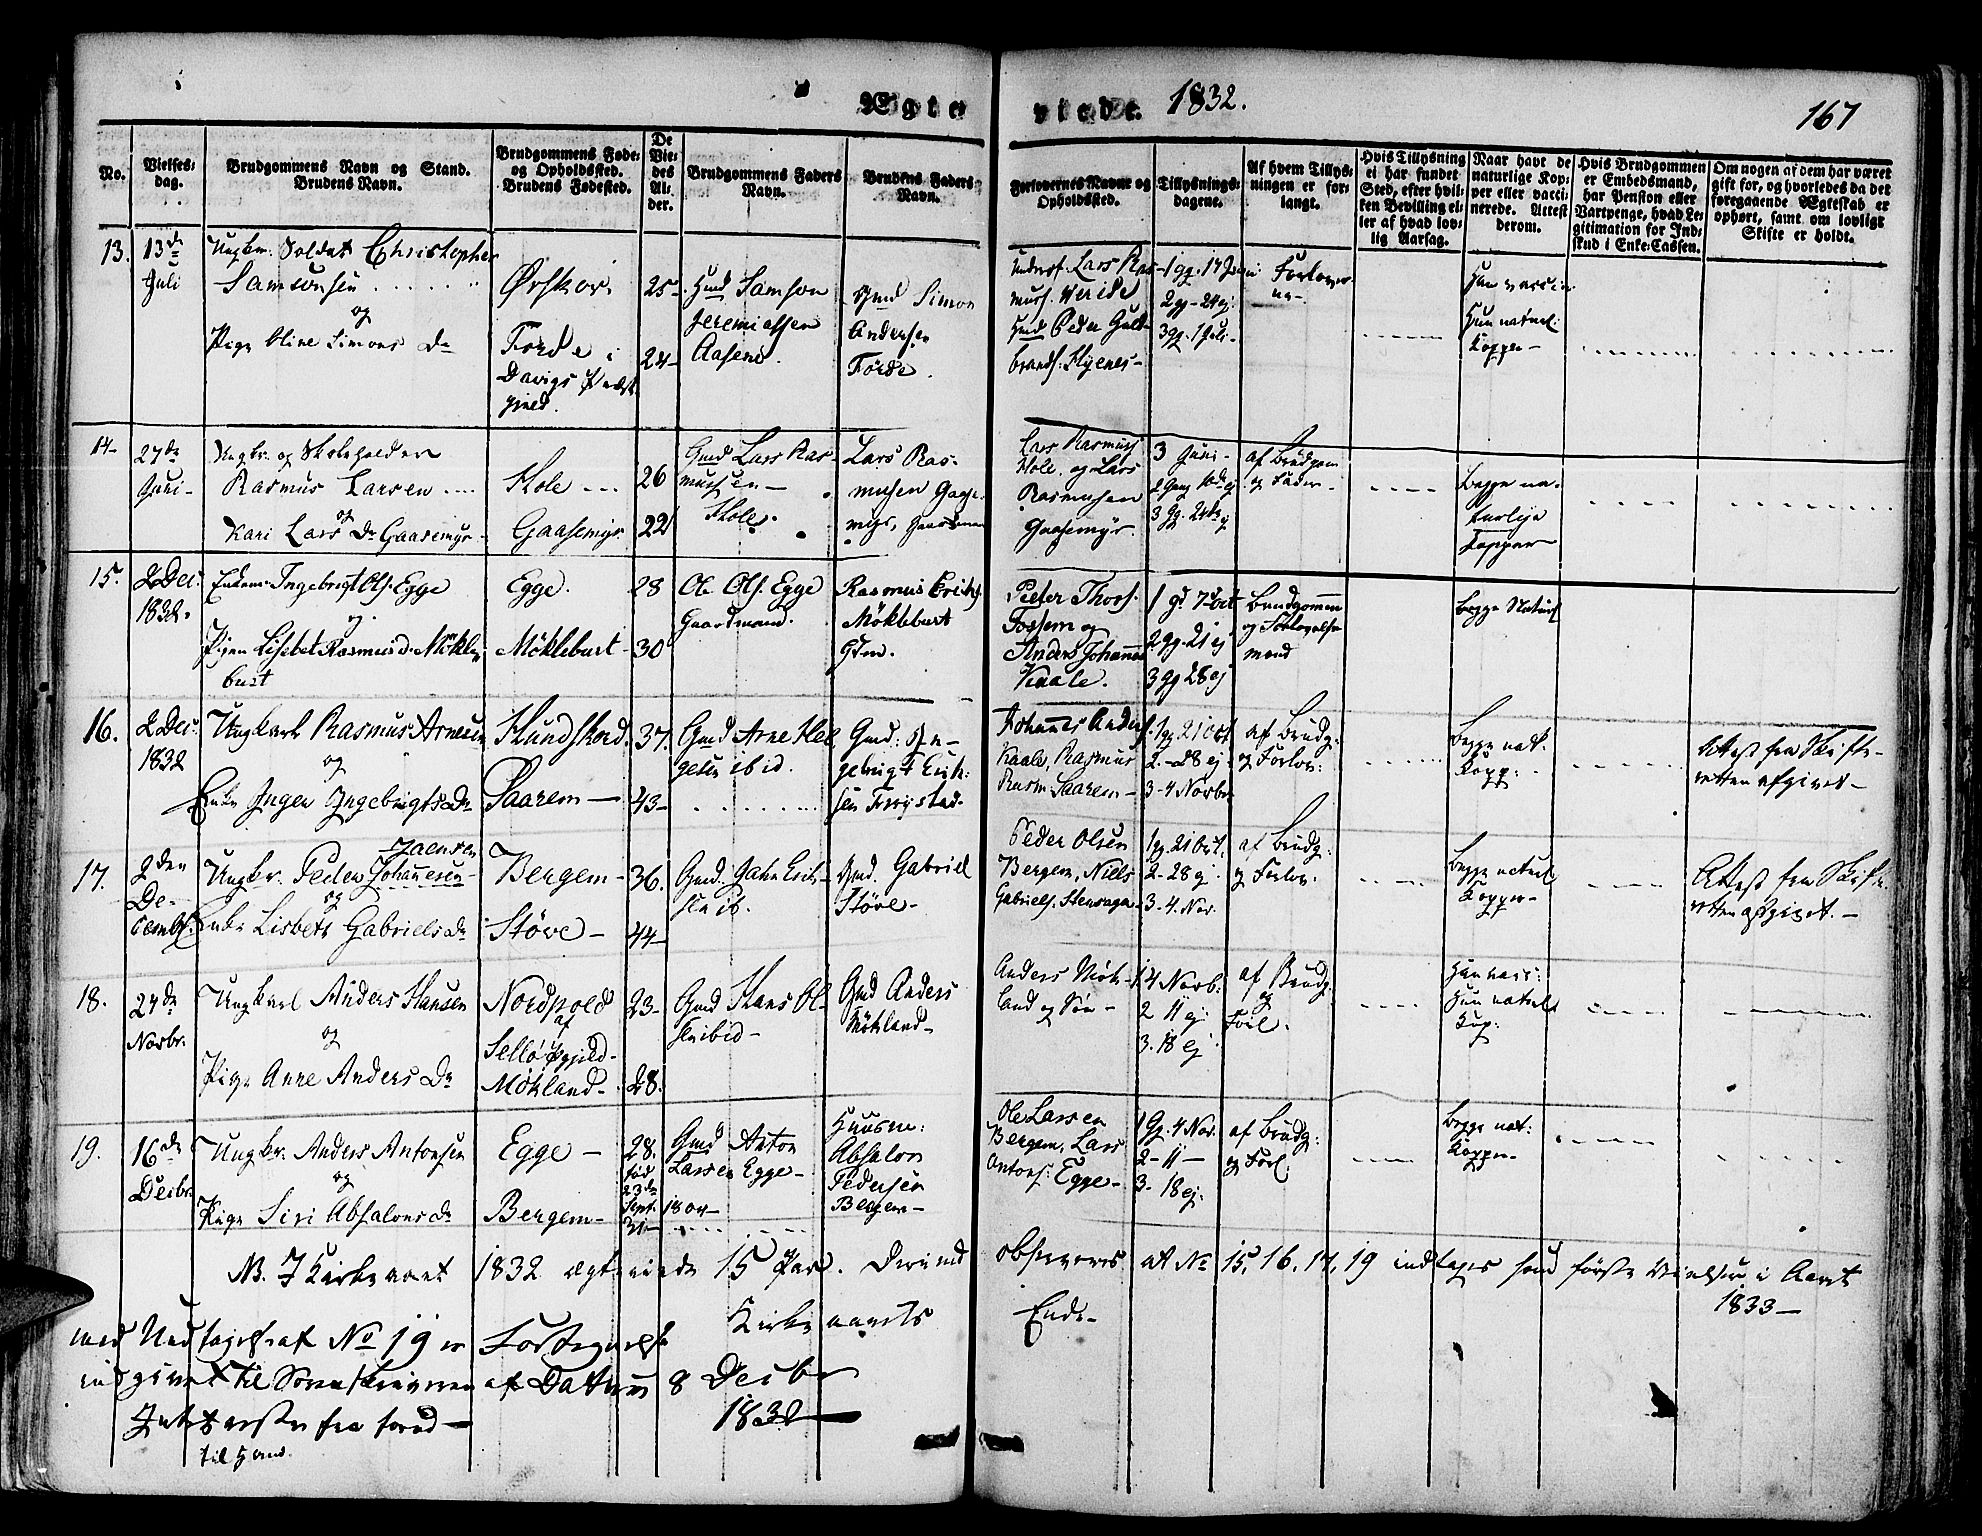 Ægte viede. 1832. 167
No.
Vielses-dag.
Brudgommens Navn og Stand.
Brudens Navn.
Brudgommens Føde- og Opholdssted.
Brudens Fødested.
De Viedes Alder.
Brudgommens Faders Navn.
Brudens Faders Navn.
Forlovernes Navne og Opholdssted.
Tillysnings-dagene.
Af hvem Tillysningen er forlangt.
Hvis Tillysning ei har fundet Sted, efter hvilken Bevilling eller af hvad lovlig Aarsag.
Naar havt de naturlige Kopper eller vaccinerede. Attest derom.
Hvis Brudgommen er Embedsmand, har Pension eller Vartpenge, hvad Legitimation for Indskud i Enke-Cassen.
Om nogen af dem har været gift før, og hvorledes da det foregaaende Ægteskab er ophørt, samt om lovligt Skifte er holdt.
13.
13de Juli
Ungkr. Soldat Christopher
Samsonsen
og
Pige Oline Simons Dr
Ørskov
Førde i
Davigs Præst
gield.
25
24
Gmd Samson
Jeremiassen
Aasene.
Gmd Simon
Andersen
Førde.
Lars Ras-
muss.
Gmd Peder Guld-
brands. Hyenes
1 gg. 17 Juni
2 gg - 24 ej
3 gg. 1 Juli
Forlover
ne
Han vacci
Hun naturl:
Kopper
14
27de
Juni
Ungkr. og Skoleholder
Rasmus Larsen
og
Kari Lars Dr Gaasemyr
Hole
Gaasemyr
26
22
Gmd Lars Ras-
mussen
Hole.
Lars Ras-
musen Gaase-
myr, Gaardman
Lars Rasmuss
Hole og Lars
Rasmusen
Gaasemyr.
3 Juni
2 Gang 10de ej
3 gg. 24de ej
af Brudgom
og Fader
Begge na-
turlige
Kopper
15.
2 Dec.
1832.
Enkem. Ingebrigt Ols. Egge
og
Pigen Lisebet Rasmusd. Mökle
bust
Egge.
Möklebust
28
30
Ole Ols. Egge
Gaardmand.
Rasmus Eriks.
Mökleburt
Gdm.
Peter Thors.
Fossem og
Anders Johannes
Kaale.
1 gg 7de Oct
2 gg. 21 ej
3 gg 28 ej
Brudgommen
og Forlovelses
mand
begge Naturl
16.
2 Dec.
1832
Ungkarl Rasmus Arnesen
og
Enke Inger Ingebrigts Dr
Hundskord.
Saarem
37.
43
Gmd Arne Hel
gesen ibid.
Gmd: In-
gebrigt Erik-
sen Frøystad
Johannes Anders.
Kaale, Rasmus
Rasm Saarem
1 gg 21 Oct
2 - 28 ej
3 - 4 Novbr
af Brudg:
og Forlov:
Begge nat.
Kopp:
Attest fra Skifte-
retten afgivet
17.
2den
De-
cembr.
Jaensen
Ungkr. Peder Johannesen
og
Enke Lisbeth Gabriels Dr
Bergem
Støve
36.
44
Gmd. Jahn Erik-
sen ib.
Gmd. Gabriel
Støve
Peder Olsen
Bergem, Niels
Gabriels. Stensaga
1 gg. 21 Oct.
2 - 28 ej.
3 - 4. Nov.
af Brudg:
og Forlov.
begge naturl
Kopper
Attest fra Skifte
retten afgivet.
18.
24de
Novbr.
Ungkarl Anders Hansen
og
Pige Anne Anders Dr
Nordpold
af
Sellö Pgjeld
Mökland
23
28.
Gmd Hans Ol-
sen ibid
Gmd Anders
Mökland
Anders Mök-
land og Søn
1 4 Novb:
2 11 ej
3. 18 ej
af Brudg.
og
Forl.
Han vacc:
Hun naturl
Kop:
19.
16de
Decbr.
Ungkr. Anders Antonsen
og
Pige Siri Absalons Dr
Egge
Bergem
28.
fød
23de
Sept. 1804
31
Gmd Anton
Larsen Egge
Huusm:
Absalon
Pedersen
Bergem
Ole Larsen
Bergem, Lars
Antons: Egge
1 Gg. 4 Nov.
2 - 11
3. 18 ej.
af Brudg:
og Forl:
begge nat:
Kopper
NB. I Kirkeaaret 1832 ægteviede 15 Par. Derved observeres at No 15, 16, 17, 19 indtages som første Vielser i Aaret
1833
Kirkeaarets Ende
med Undtagelse af No 19 er Fortegnelse
indgivet til Sorenskriveren af Datum 8 Decbr
1832